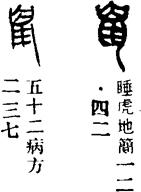 睡虎地简一二
·四二
五十二病方
二三七